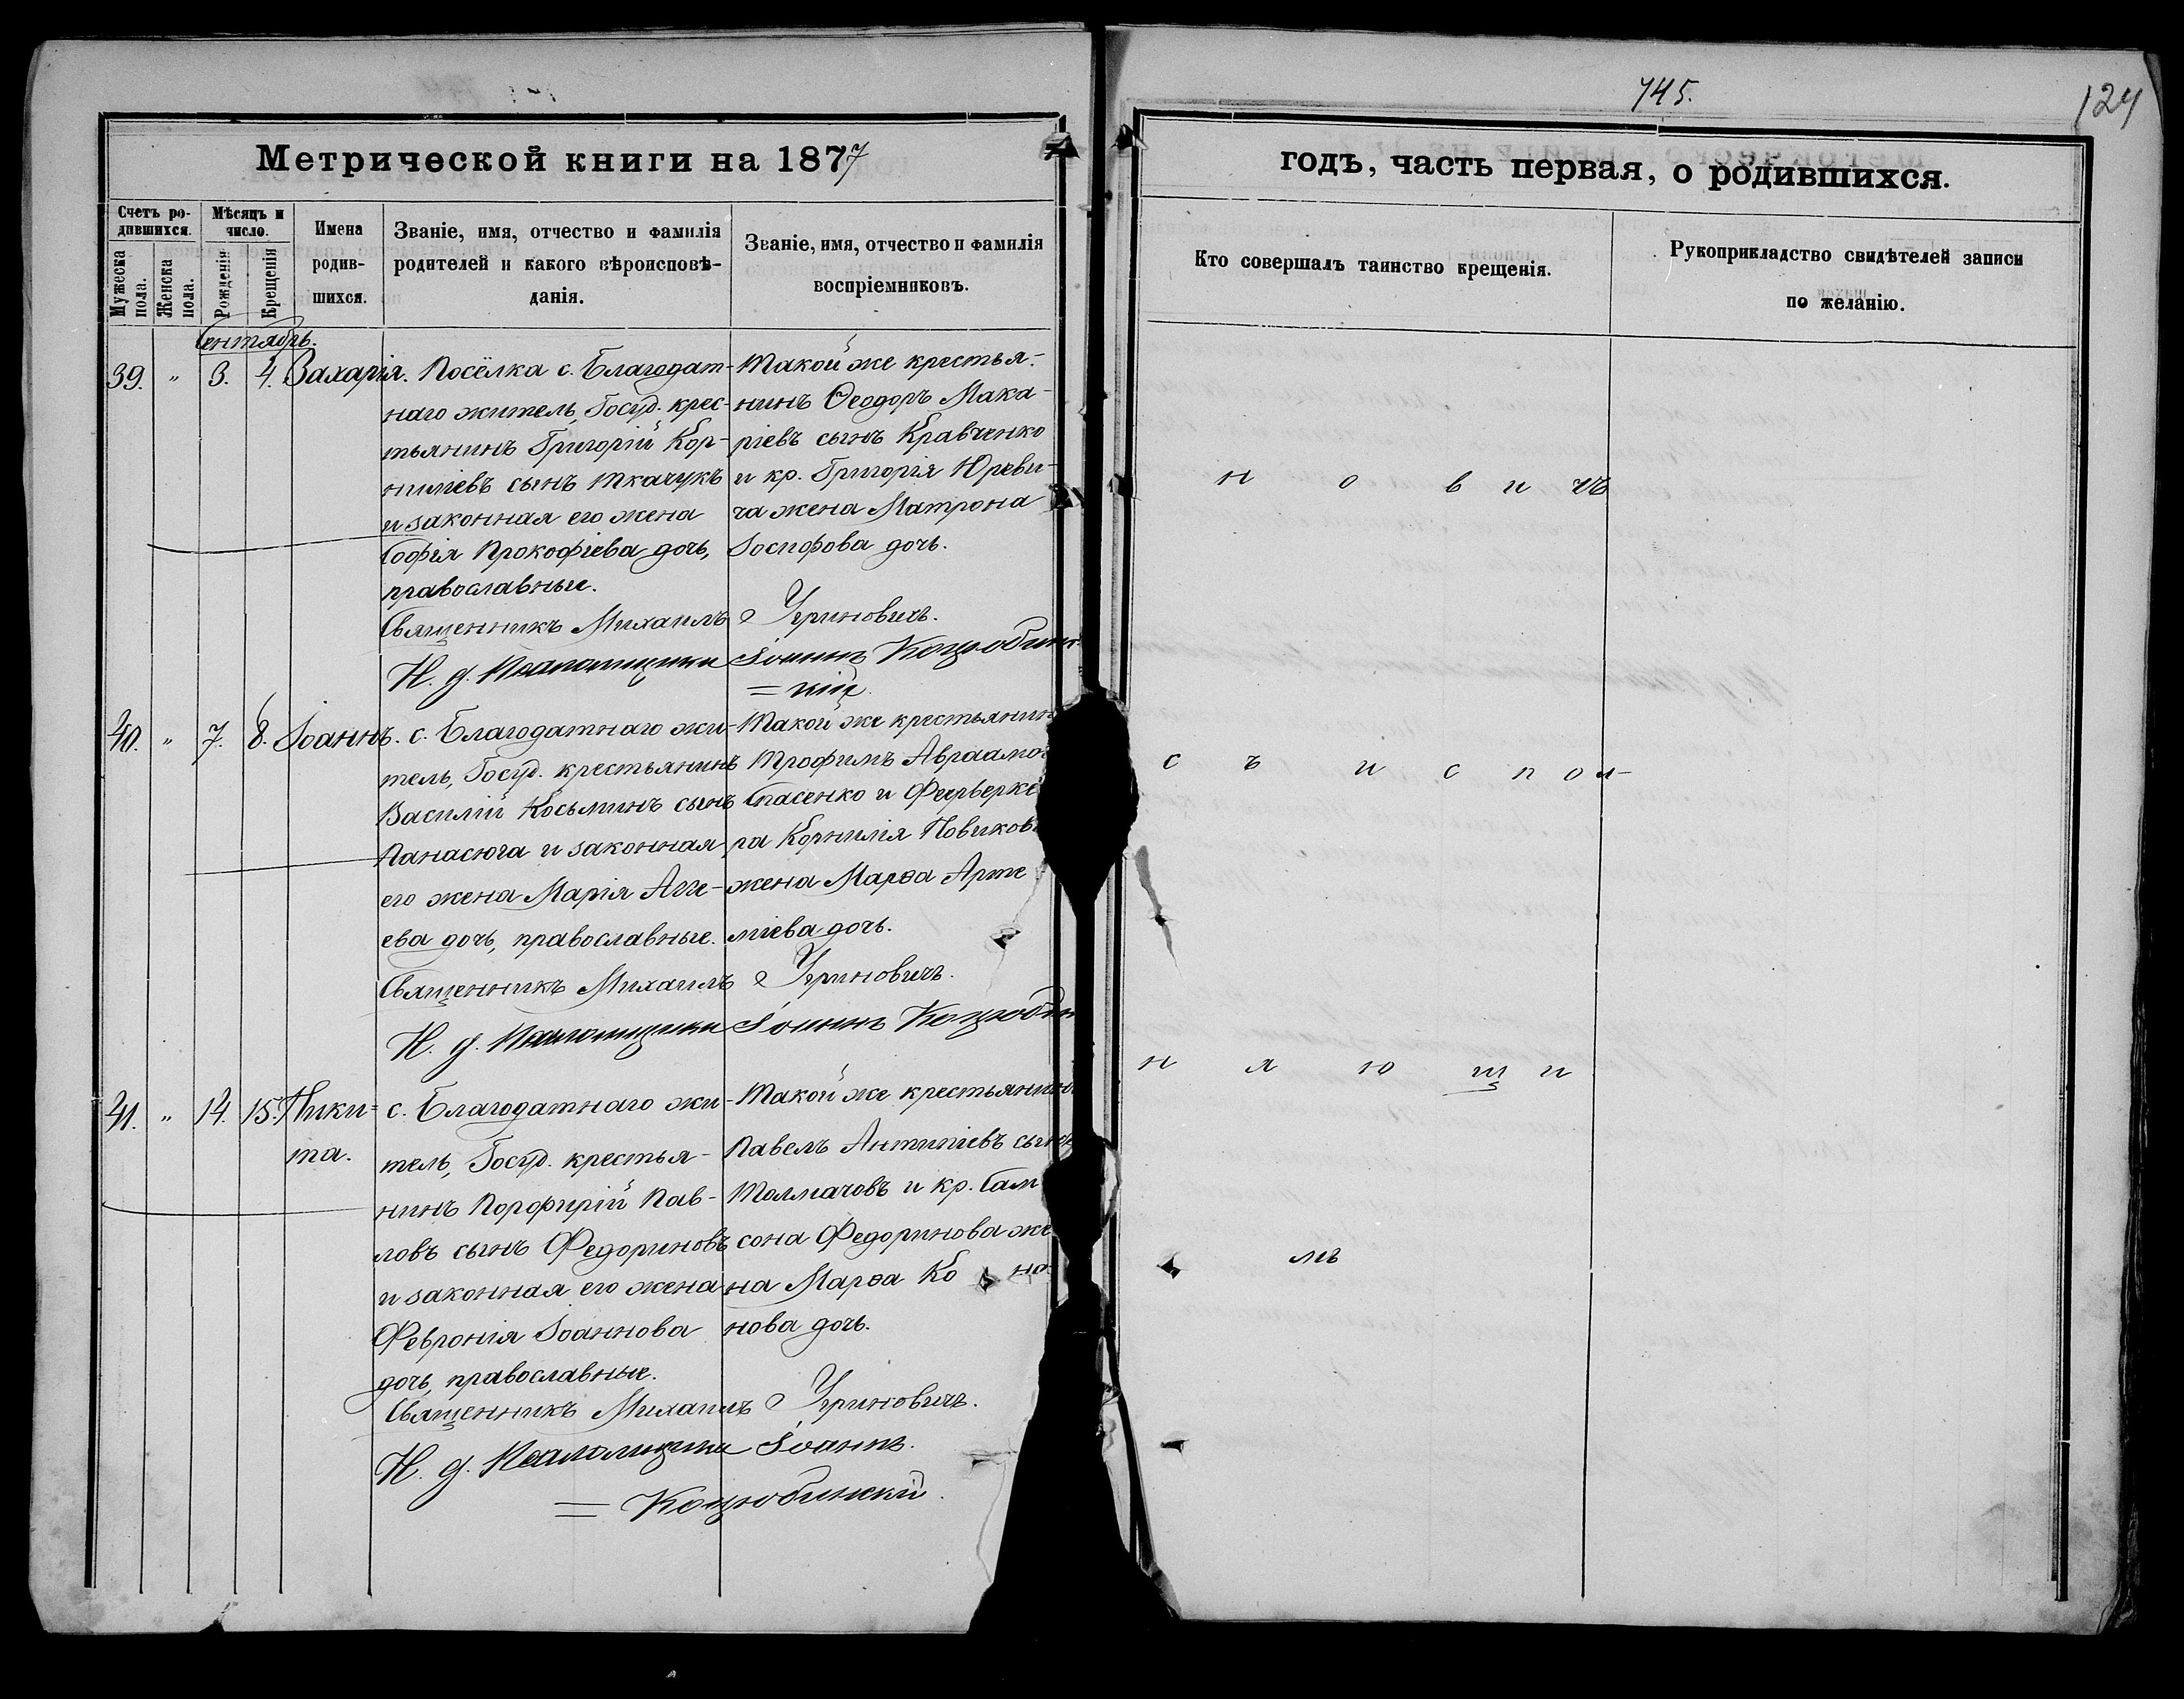 745.
124
Метрической книги на 1877
годъ, часть первая, о родившихся.
Счетъ ро-
дившихся.
Мужеска пола.
Женска пола.
Мѣсяцъ и
число.
Рожденія
Крещенія
Имена
родив-
шихся.
Званіе, имя, отчество и фамилія
родителей и какого вѣроисповѣ-
данія.
Званіе, имя, отчество и фамилія
воспріемниковъ.
Кто совершалъ таинство крещенія.
Рукоприкладство свидѣтелей записи
по желанію.
Сентябрь.
39. " 3. 4. Захарія.
Посёлка с. Благодат-
наго житель, Госуд. крес-
тьянинъ Григорій Кор-
ниліевъ сынъ Ткачукъ
и законная его жена
Софія Прокофіева дочь,
православные.
Такой же крестья-
нинъ Ѳеодоръ Мака-
ріевъ сынъ Кравченко
и кр. Григорія Юреви-
ча жена Матрона
Іосифова дочь.
Священникъ Михаилъ Угриновичъ.
И. д. Псаломщика Іоаннъ Коцюбинс-
=кій.
40. " 7. 8. Іоаннъ.
с. Благодатнаго жи-
тель, Госуд. крестьянинъ
Василій Косьминъ сынъ
Панасюга и законная
его жена Марія Агге-
ева дочь, православные.
Такой же крестьянин
Трофимъ Авраамо
Спасенко и Феерверке
ра Корнилія Новиков
жена Марѳа Арте
міева дочь.
Священникъ Михаилъ Угриновичъ.
И. д. Псаломщика Іоаннъ Коцюбин
41. " 14. 15. Ники-
та.
с. Благодатнаго жи-
тель, Госуд. крестья-
нинъ Порфирій Пав-
ловъ сынъ Федориновъ
и законная его жена
Февронія Іоаннова
дочь, православные.
Такой же крестьянинъ
Павелъ Антипіевъ сынъ
Толмачовъ и кр. Сам
сона Федоринова же
на Марѳа Ко но
нова дочь.
Священникъ Михаилъ Угриновичъ.
И. д. Псаломщика Іоаннъ.
= Коцюбинскій.
н о в и чъ
с ъ и с п ол-
н я ю щ и
мъ